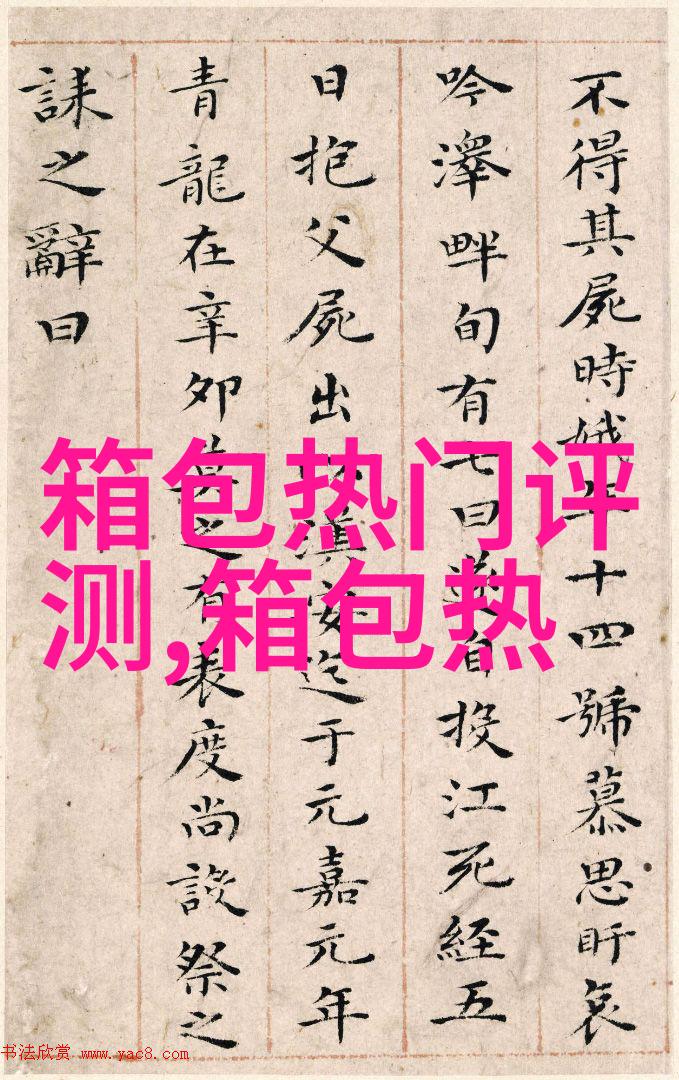 不得其屍時娥年十四號慕思盱哀
吟澤畔旬有七日遂自投江死經五
日抱父屍出以漢安迄于元嘉元年
青龍在辛卯莫之有表度尚設祭之
誄之辭曰
箱包热门评
测,箱包热
书法欣赏 www.yac8.com